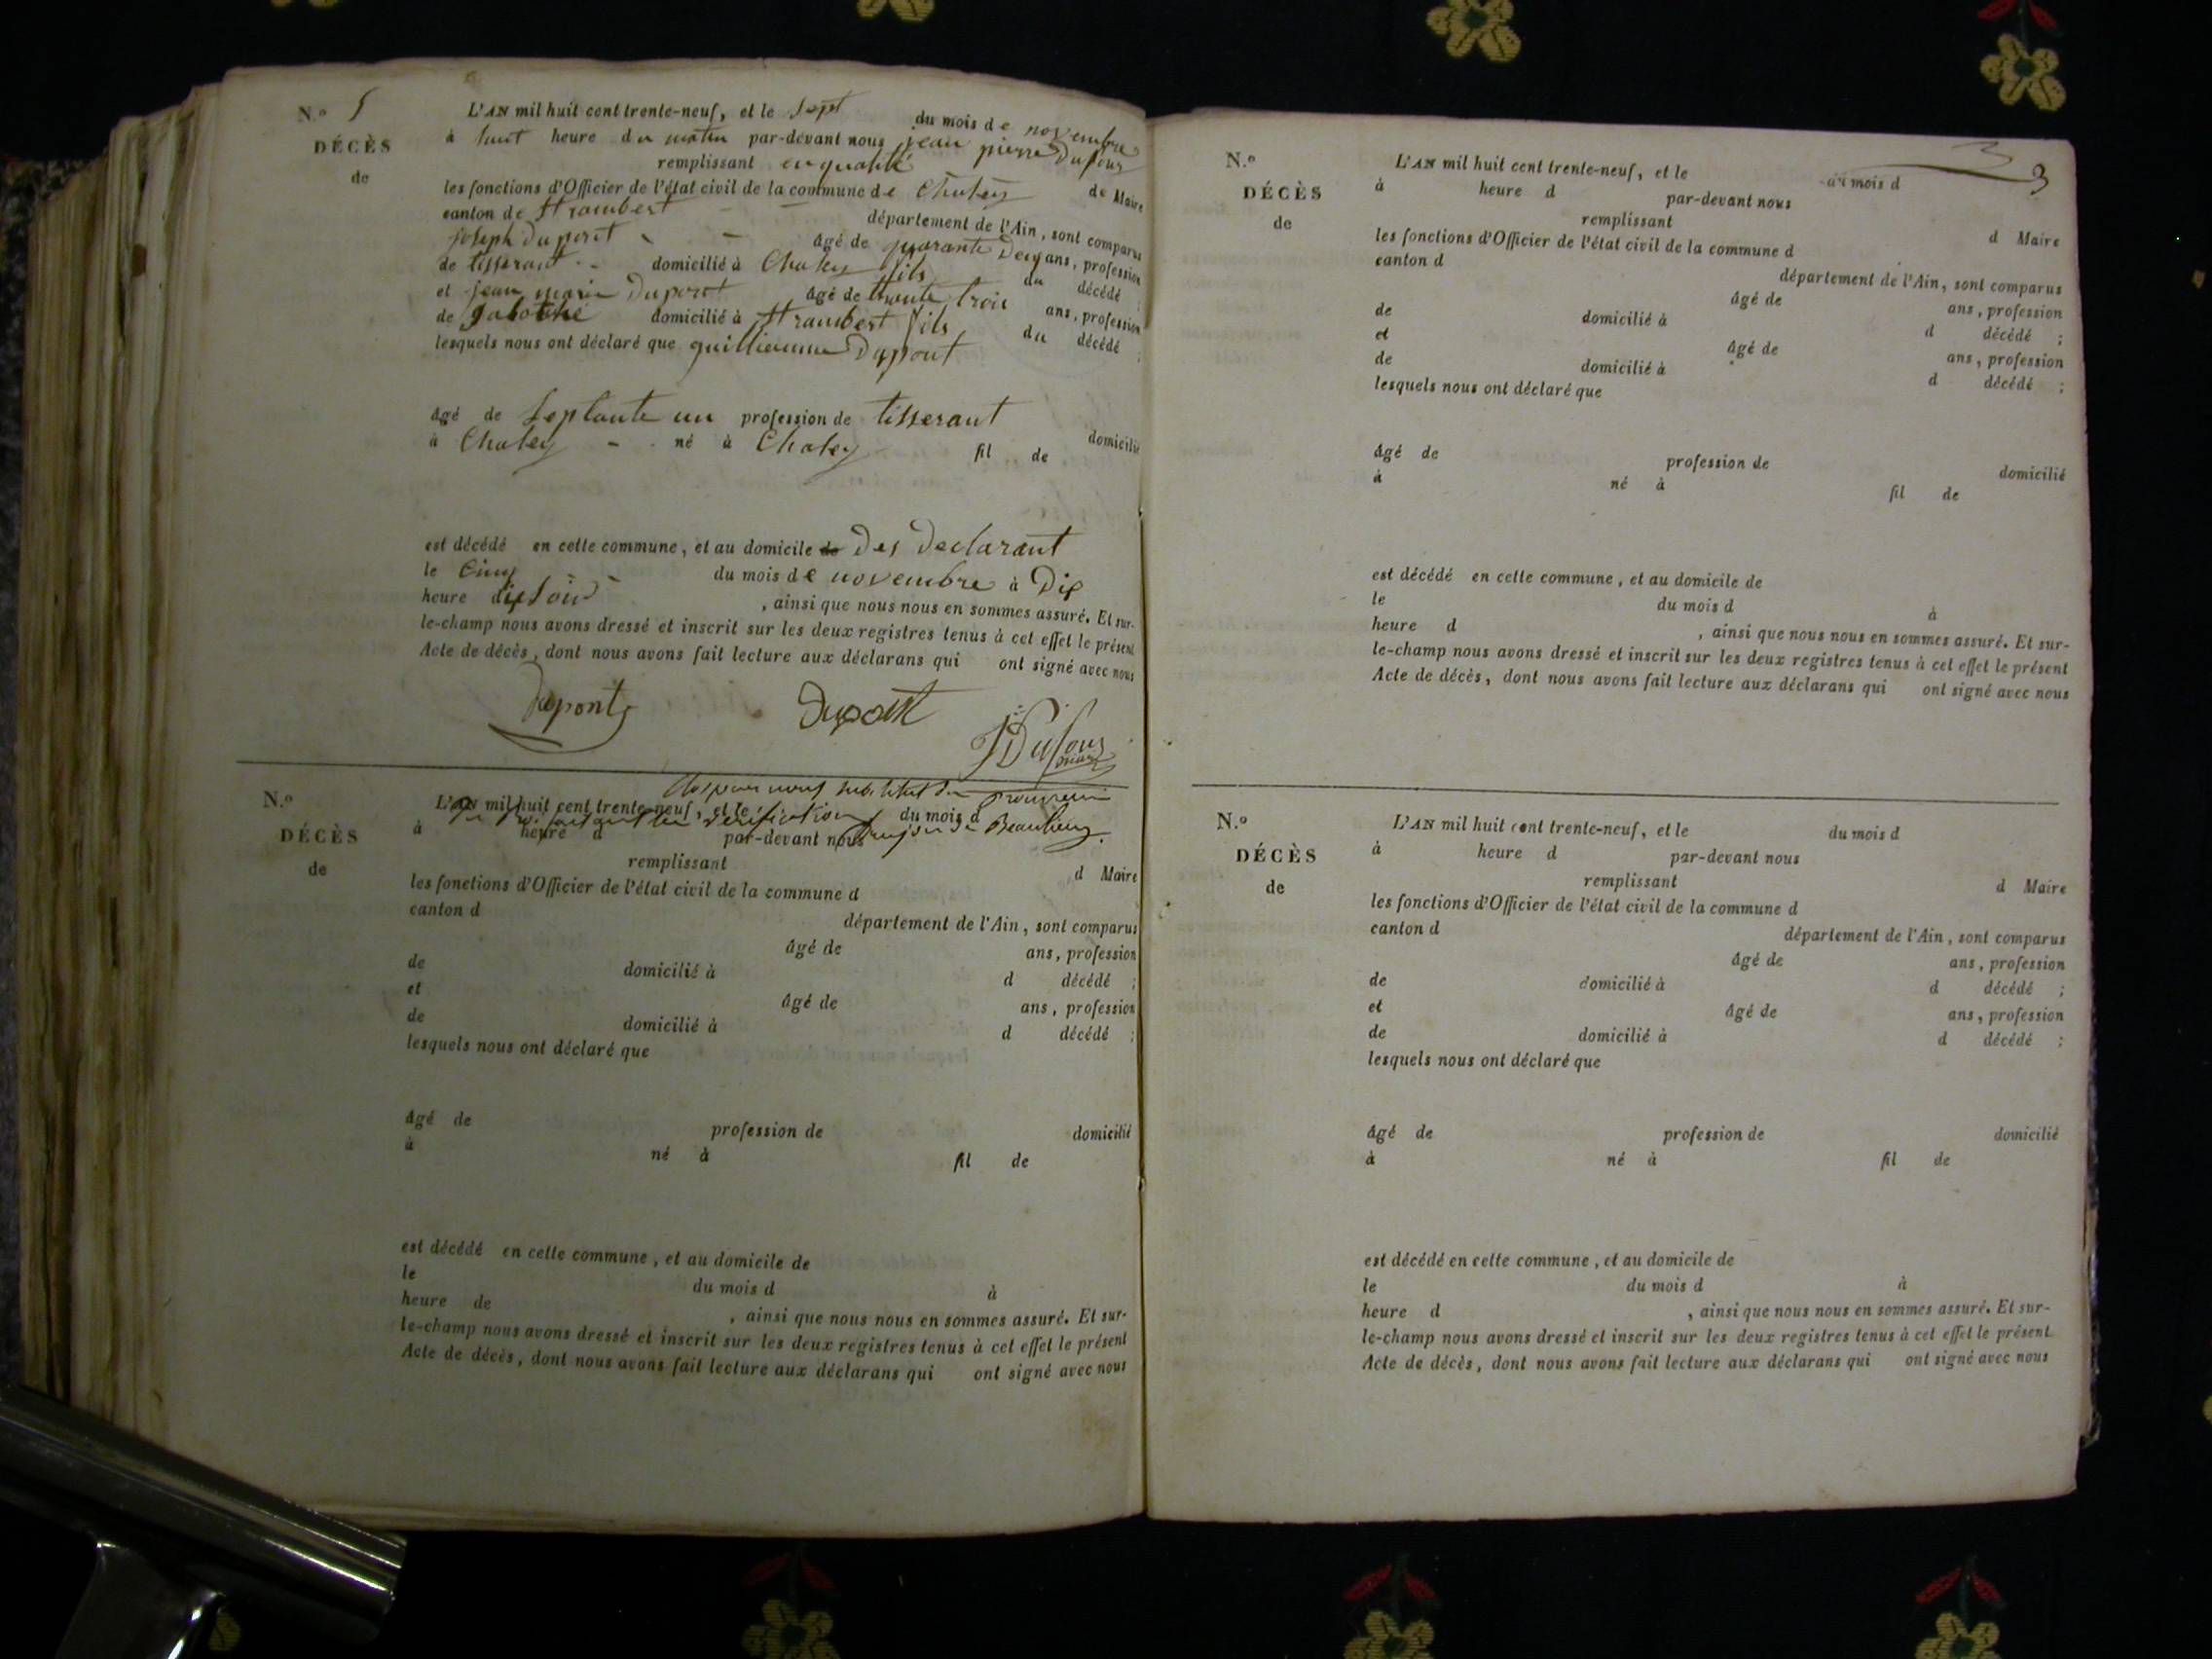 N.º 5
DÉCÈS
de
L'AN mil huit cent trente-neuf, et le Sept du mois de novembre
à huit heure du matin par-devant nous jean pierre Dufour
remplissant en qualité de Maire
les fonctions d'Officier de l'état civil de la commune de Chaley
canton de St rambert département de l'Ain, sont comparus
joseph Dupont âgé de quarante Deux ans, profession
de tisserant domicilié à Chaley fils du décédé ;
et jean marie Dupont âgé de trente trois ans, profession
de domicilié à St rambert fils du décédé ;
lesquels nous ont déclaré que guilliaume Dupont
âgé de Septante un profession de tisserant domicilié
à Chaley né à Chaley fil de
est décédé en cette commune, et au domicile de Des Declarant
le Cinq du mois de novembre à Dix
heure du Soir , ainsi que nous nous en sommes assuré. Et sur-
le-champ nous avons dressé et inscrit sur les deux registres tenus à cet effet le présent
Acte de décès, dont nous avons fait lecture aux déclarans qui ont signé avec nous
Dupont Dupont
Dufour
maire
Clos par nous substitut du
vérification
Beaulieu
N.º
DÉCÈS
de
L'AN mil huit cent trente-neuf, et le du mois d
à heure d par-devant nous
remplissant d Maire
les fonctions d'Officier de l'état civil de la commune d
canton d département de l'Ain, sont comparus
âgé de ans, profession
de domicilié à d décédé ;
et âgé de ans, profession
de domicilié à d décédé ;
lesquels nous ont déclaré que
âgé de profession de domicilié
à né à fil de
est décédé en cette commune, et au domicile de
le du mois d à
heure de , ainsi que nous nous en sommes assuré. Et sur-
le-champ nous avons dressé et inscrit sur les deux registres tenus à cet effet le présent
Acte de décès, dont nous avons fait lecture aux déclarans qui ont signé avec nous
3
N.º
DÉCÈS
de
L'AN mil huit cent trente-neuf, et le du mois d
à heure d par-devant nous
remplissant d Maire
les fonctions d'Officier de l'état civil de la commune d
canton d département de l'Ain, sont comparus
âgé de ans, profession
de domicilié à d décédé ;
et âgé de ans, profession
de domicilié à d décédé ;
lesquels nous ont déclaré que
âgé de profession de domicilié
à né à fil de
est décédé en cette commune, et au domicile de
le du mois d à
heure d , ainsi que nous nous en sommes assuré. Et sur-
le-champ nous avons dressé et inscrit sur les deux registres tenus à cet effet le présent
Acte de décès, dont nous avons fait lecture aux déclarans qui ont signé avec nous
N.º
DÉCÈS
de
L'AN mil huit cent trente-neuf, et le du mois d
à heure d par-devant nous
remplissant d Maire
les fonctions d'Officier de l'état civil de la commune d
canton d département de l'Ain, sont comparus
âgé de ans, profession
de domicilié à d décédé ;
et âgé de ans, profession
de domicilié à d décédé ;
lesquels nous ont déclaré que
âgé de profession de domicilié
à né à fil de
est décédé en cette commune, et au domicile de
le du mois d à
heure d , ainsi que nous nous en sommes assuré. Et sur-
le-champ nous avons dressé et inscrit sur les deux registres tenus à cet effet le présent
Acte de décès, dont nous avons fait lecture aux déclarans qui ont signé avec nous